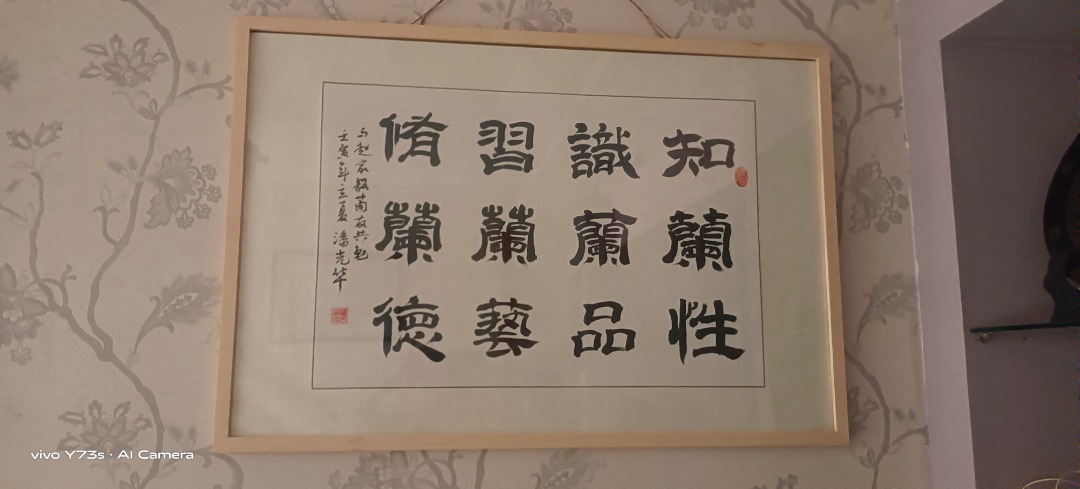 知蘭性
識蘭品
習蘭藝
脩蘭德
与赵家毅兰友共勉
壬寅年立夏 潘光华
vivo Y73s · AI Camera